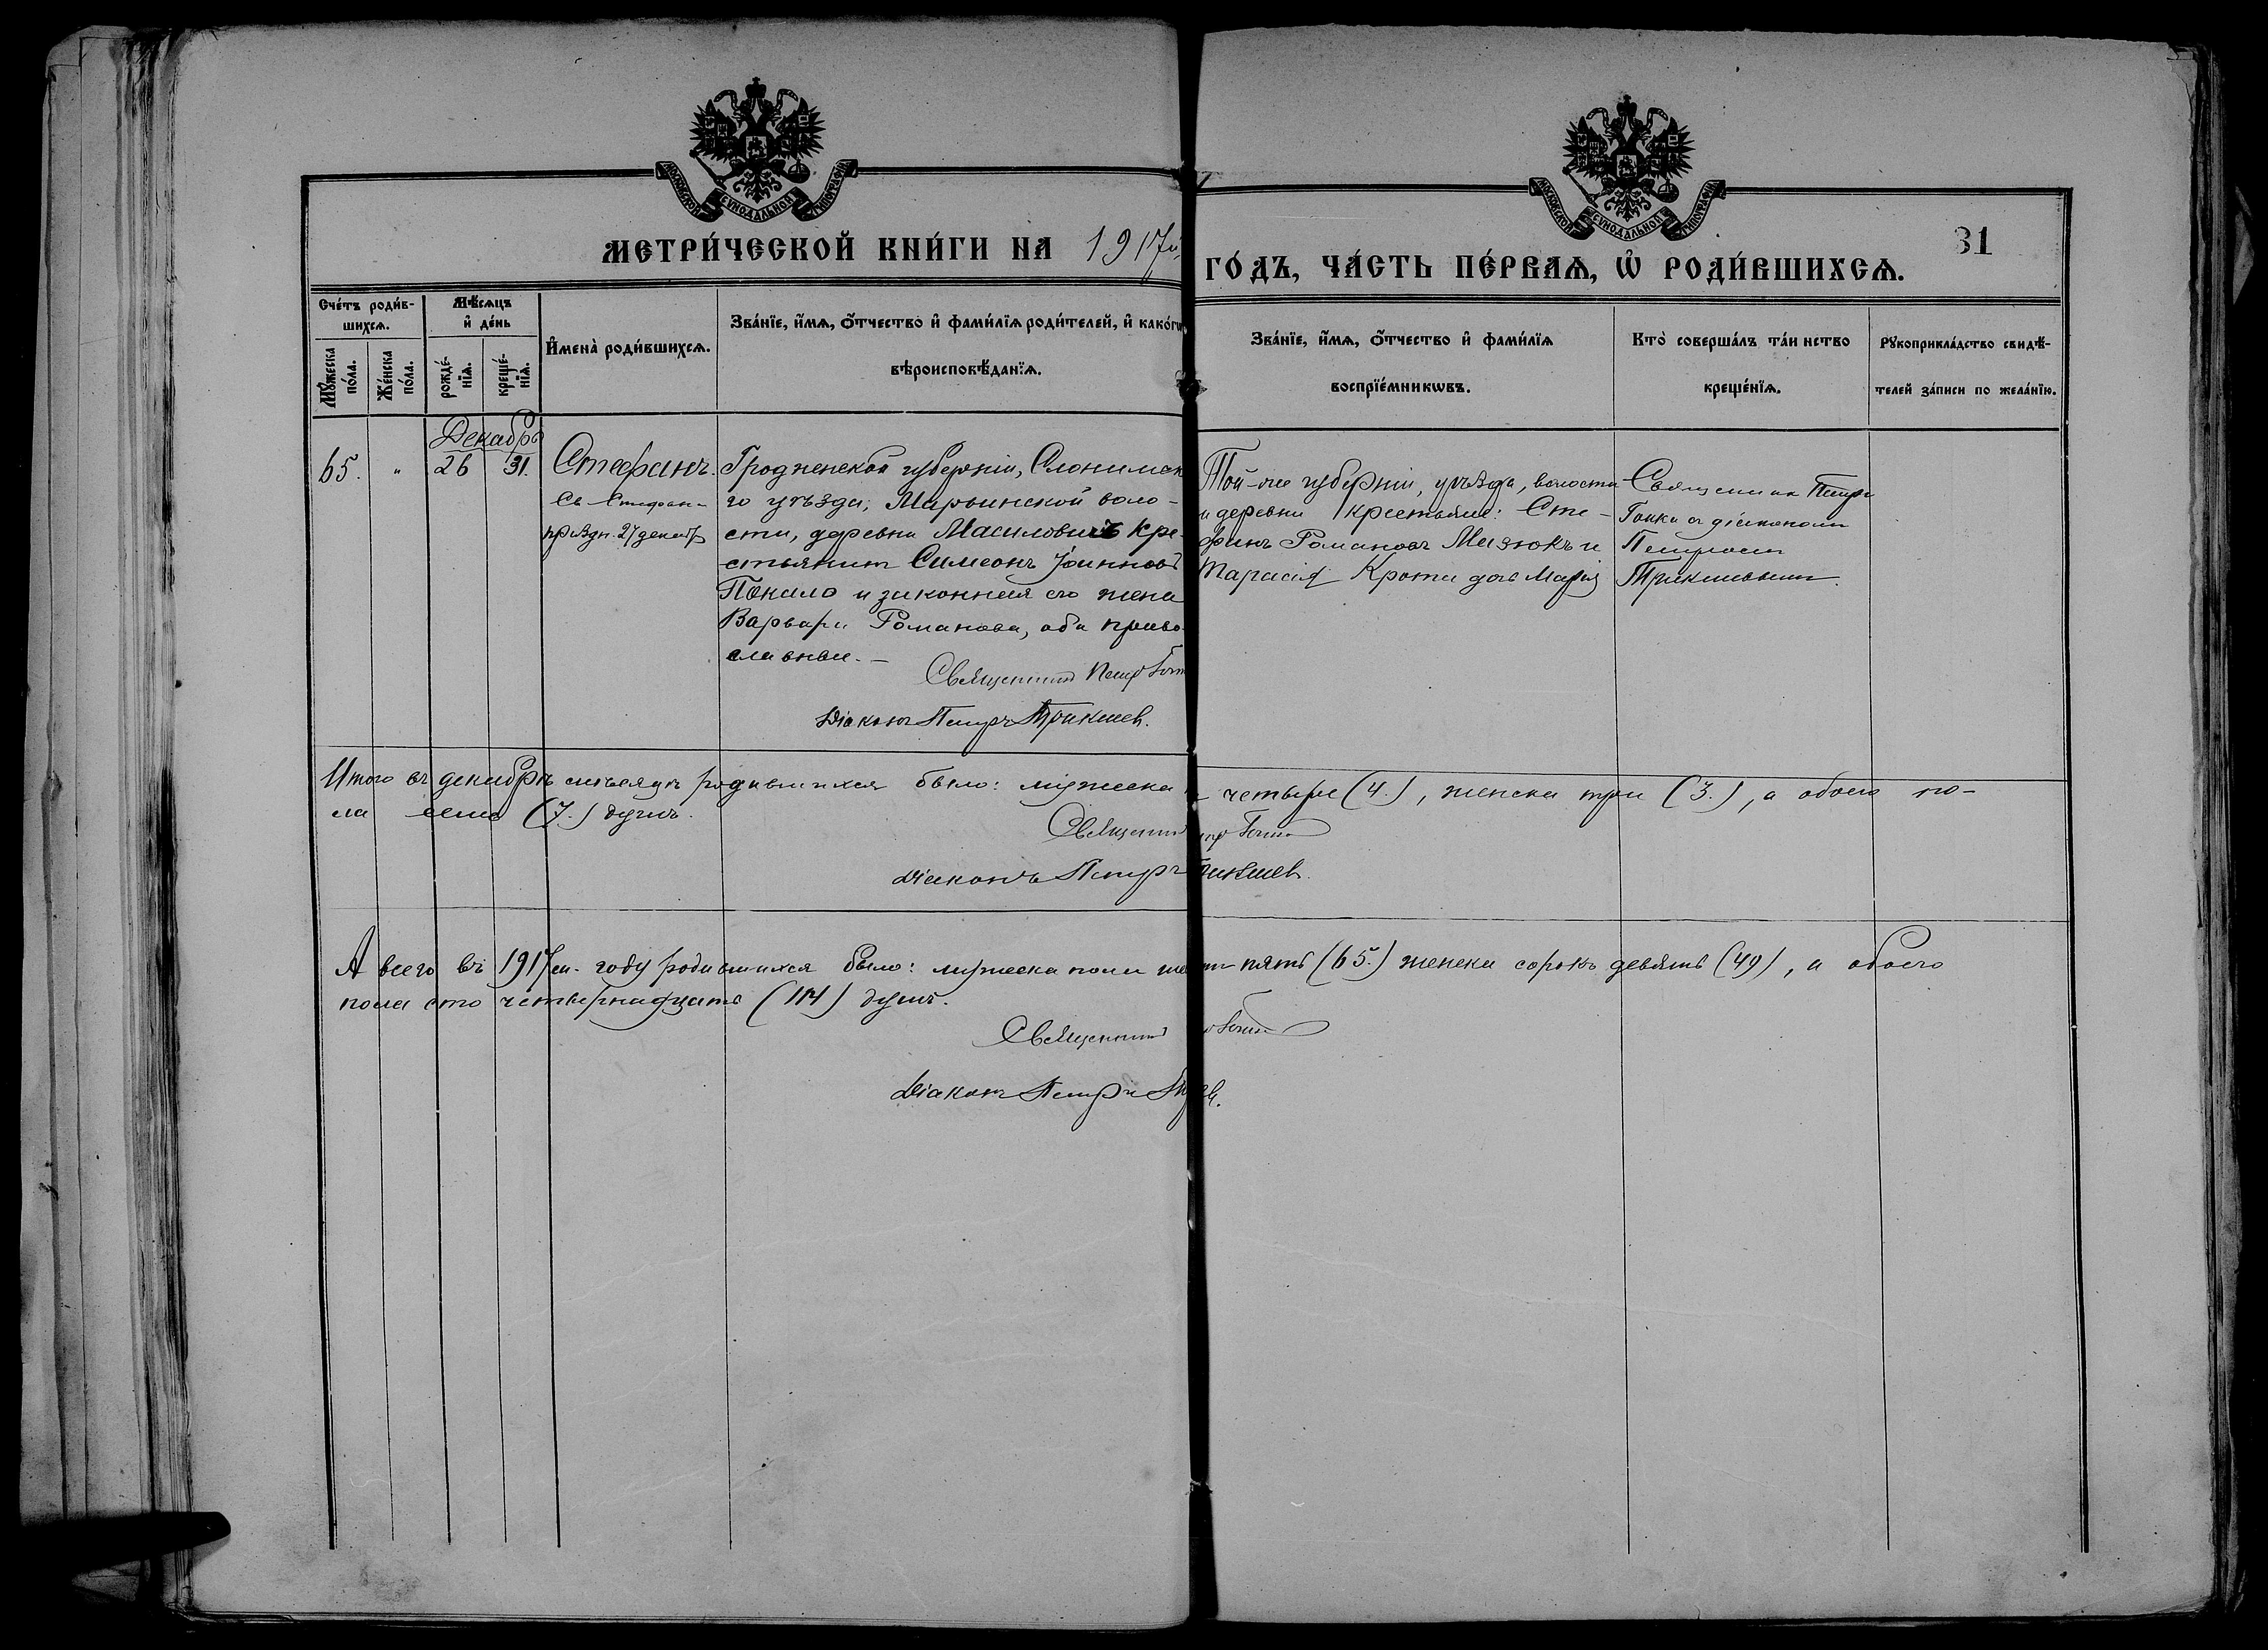 МОСКОВСКОЙ СѴНОДАЛЬНОЙ ТИПОГРАФІИ
МОСКОВСКОЙ СѴНОДАЛЬНОЙ ТИПОГРАФІИ
МЕТРИ́ЧЕСКОЙ КНИ́ГИ НА 1917й
ГО́ДЪ, ЧА́СТЬ ПЕ́РВАѦ, Ѡ҆ РОДИ́ВШИХСѦ.
31
Сче́тъ роди́в-
шихсѧ.
Мꙋ́жеска по́ла.
Же́нска по́ла.
Мѣ́сѧцъ
и҆ де́нь
рожде́-
нїѧ.
креще́-
нїѧ.
И҆мена̀ роди́вшихсѧ.
Зва́нїе, и҆́мѧ, ѻ҆́тчество и҆ фами́лїѧ роди́телей, и҆ како́гѡ
вѣроисповѣ́данїѧ.
Зва́нїе, и҆́мѧ, ѻ҆́тчество и҆ фами́лїѧ
воспрїе́мникѡвъ.
Кто̀ соверша́лъ та́инство
креще́нїѧ.
Рꙋкоприкла́дство свидѣ́-
телей за́писи по жела́нїю.
Декабрь
65. " 26 31. Стефанъ.
Св. Стефан-
праздн. 27 декабр
Гродненской губерніи, Слонимск
го уѣзда, Марьинской воло-
сти, деревни Масиловичъ кре-
стьянинъ Симеонъ Іоанновъ
Покало и законная его жена
Варвара Романова, оба право-
славные. —
Священникъ Петръ
Діаконъ Петръ Трикшев.
Той-же губерніи, уѣзда, волости
и деревни крестьяне: Сте-
фанъ Романовъ Мазюкъ и
Тарасія Крота дочь Марія
Священникъ Петръ
съ діакономъ
Петромъ
Трикшевымъ.
Итого въ декабрѣ мѣсяцѣ родившихся было: мужеска четыре (4.), женска три (3.), а обоего по-
ла семь (7.) душъ.
Священник
Діаконъ Петръ Трикшев.
А всего въ 1917м. году родившихся было: мужеска пола шесть пять (65.) женска сорокъ девять (49), а обоего
пола сто четырнадцать (114) душъ.
Священникъ
Діаконъ Петръ